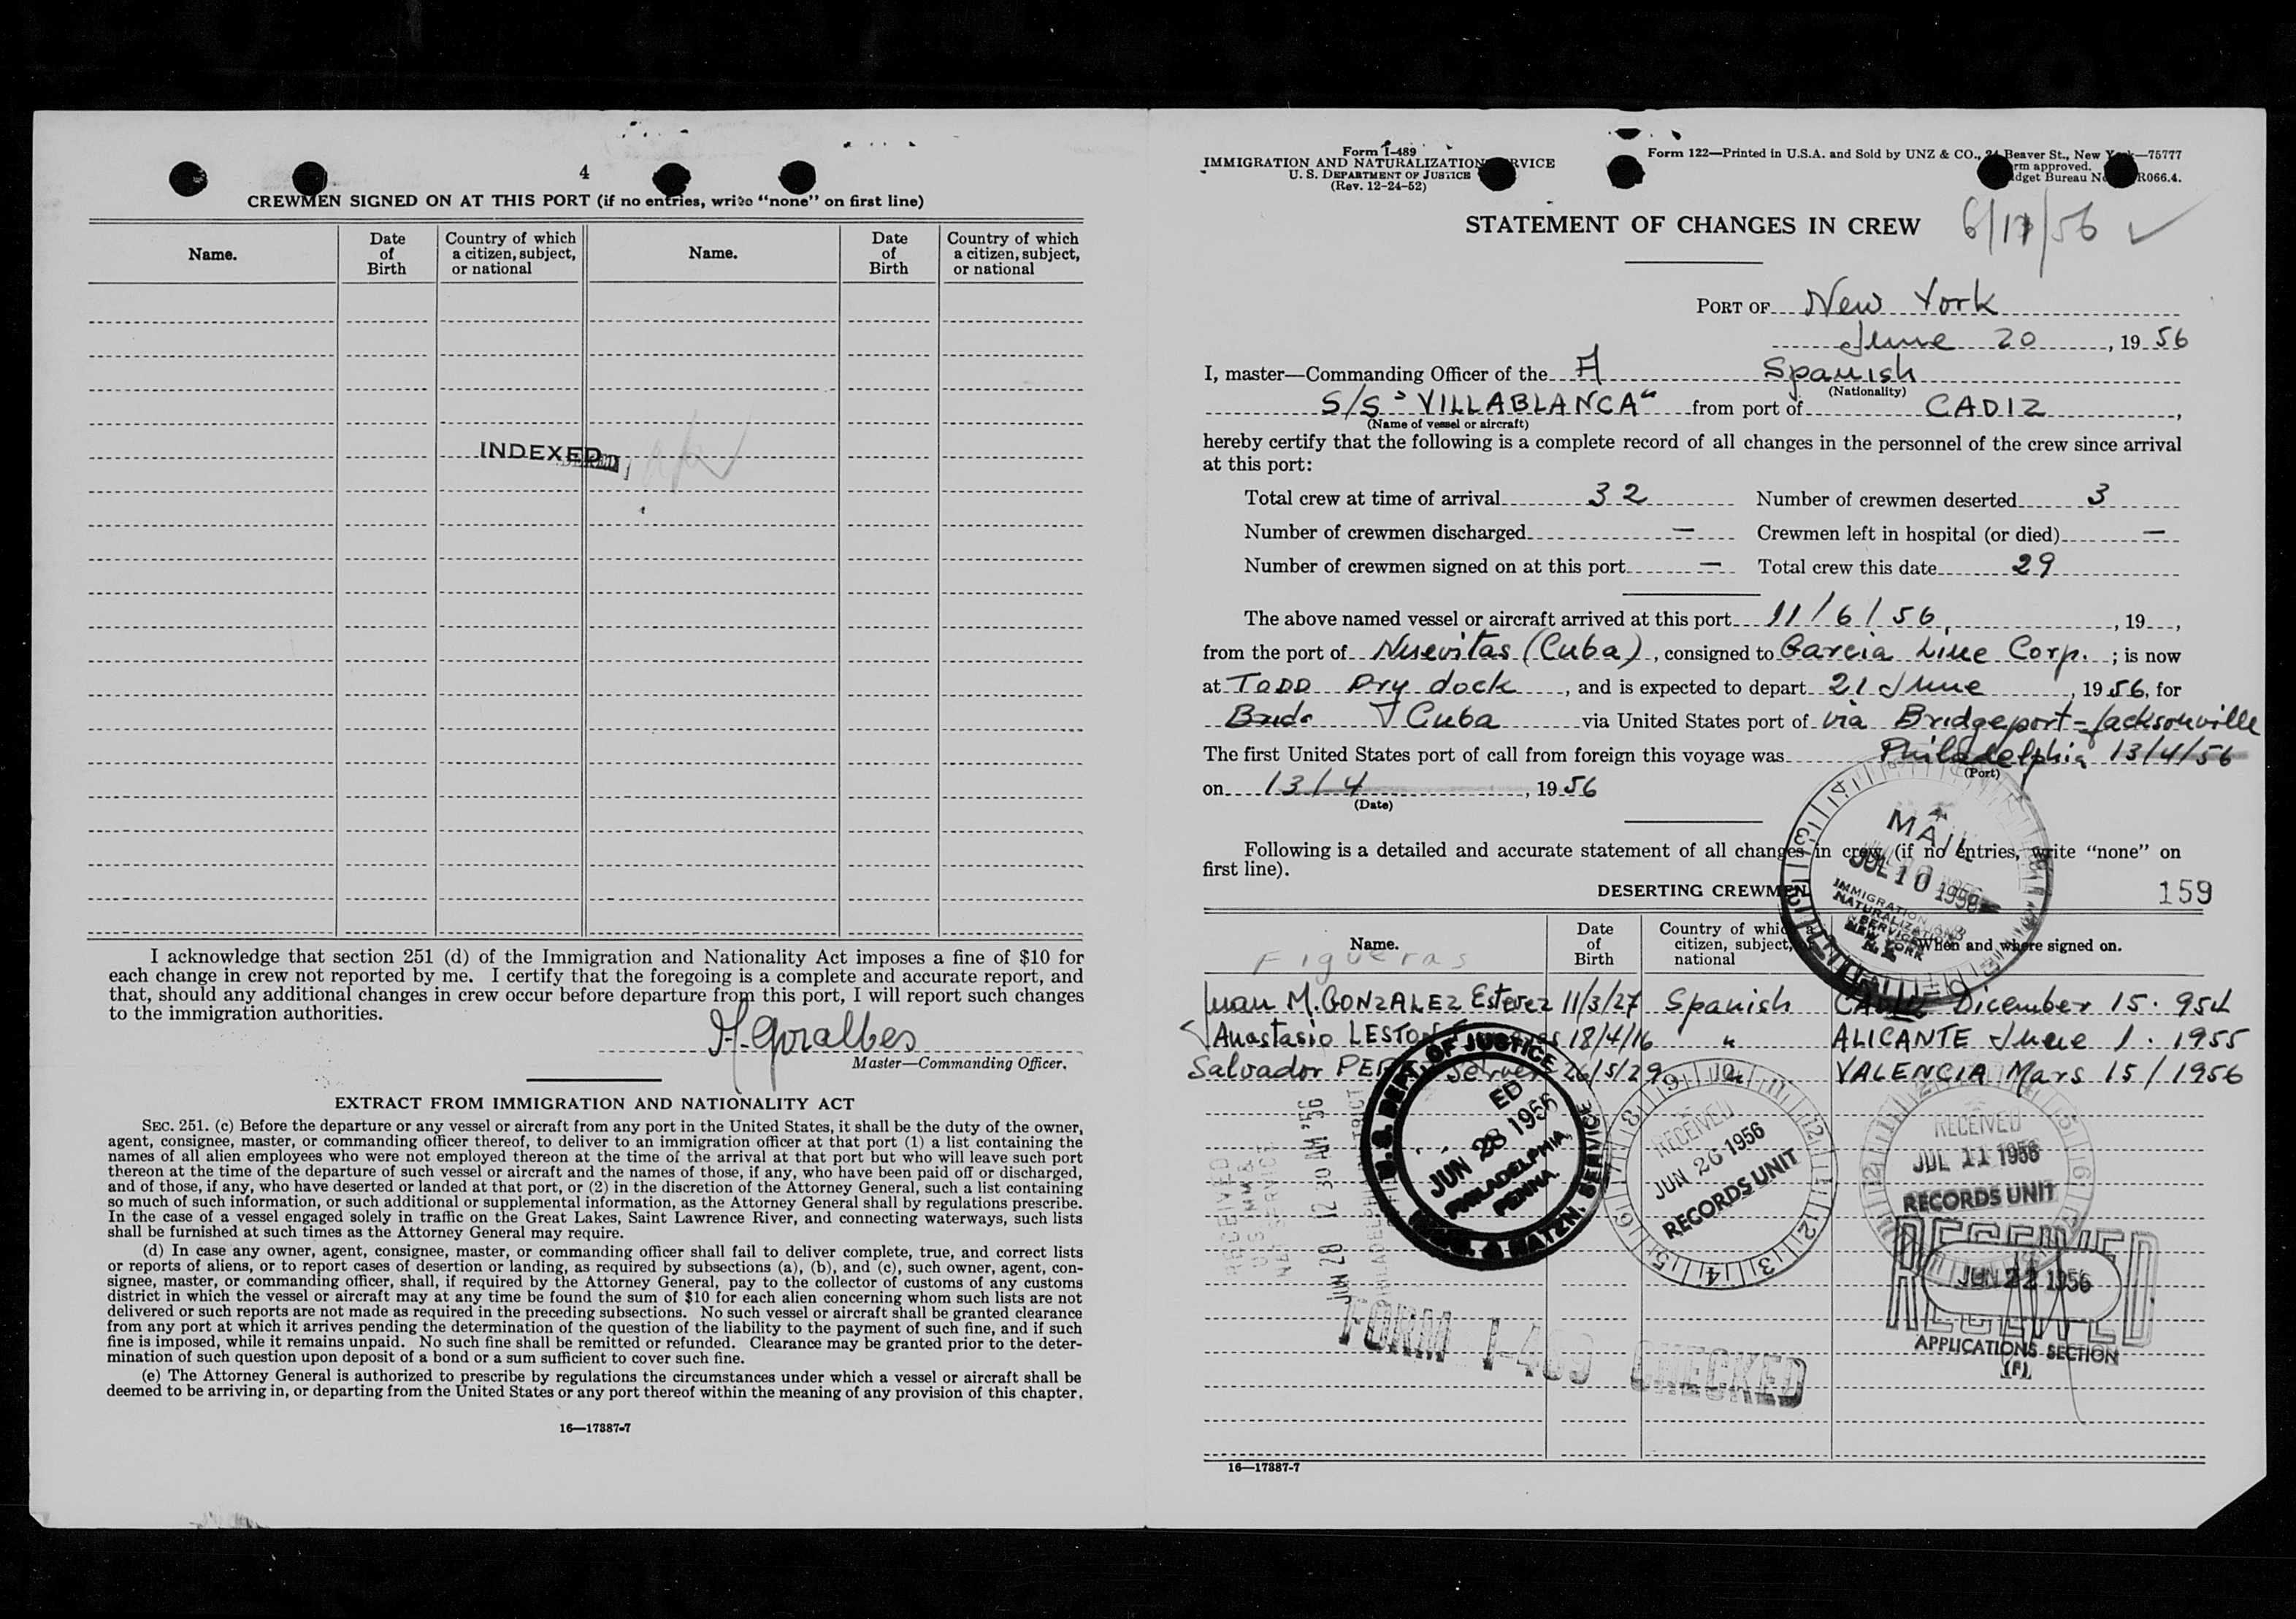 4
CREWMEN SIGNED ON AT THIS PORT (if no entries, write "none" on first line)
Name. Date of Birth Country of which a citizen, subject, or national Name. Date of Birth Country of which a citizen, subject, or national
INDEXED
I acknowledge that section 251 (d) of the Immigration and Nationality Act imposes a fine of $10 for
each change in crew not reported by me. I certify that the foregoing is a complete and accurate report, and
that, should any additional changes in crew occur before departure from this port, I will report such changes
to the immigration authorities.
Master—Commanding Officer.
EXTRACT FROM IMMIGRATION AND NATIONALITY ACT
SEC. 251. (c) Before the departure or any vessel or aircraft from any port in the United States, it shall be the duty of the owner,
agent, consignee, master, or commanding officer thereof, to deliver to an immigration officer at that port (1) a list containing the
names of all alien employees who were not employed thereon at the time of the arrival at that port but who will leave such port
thereon at the time of the departure of such vessel or aircraft and the names of those, if any, who have been paid off or discharged,
and of those, if any, who have deserted or landed at that port, or (2) in the discretion of the Attorney General, such a list containing
so much of such information, or such additional or supplemental information, as the Attorney General shall by regulations prescribe.
In the case of a vessel engaged solely in traffic on the Great Lakes, Saint Lawrence River, and connecting waterways, such lists
shall be furnished at such times as the Attorney General may require.
(d) In case any owner, agent, consignee, master, or commanding officer shall fail to deliver complete, true, and correct lists
or reports of aliens, or to report cases of desertion or landing, as required by subsections (a), (b), and (c), such owner, agent, con-
signee, master, or commanding officer, shall, if required by the Attorney General, pay to the collector of customs of any customs
district in which the vessel or aircraft may at any time be found the sum of $10 for each alien concerning whom such lists are not
delivered or such reports are not made as required in the preceding subsections. No such vessel or aircraft shall be granted clearance
from any port at which it arrives pending the determination of the question of the liability to the payment of such fine, and if such
fine is imposed, while it remains unpaid. No such fine shall be remitted or refunded. Clearance may be granted prior to the deter-
mination of such question upon deposit of a bond or a sum sufficient to cover such fine.
(e) The Attorney General is authorized to prescribe by regulations the circumstances under which a vessel or aircraft shall be
deemed to be arriving in, or departing from the United States or any port thereof within the meaning of any provision of this chapter.
16—17387-7
Form I-489
IMMIGRATION AND NATURALIZATION SERVICE
U. S. DEPARTMENT OF JUSTICE
(Rev. 12-24-52)
Form 122—Printed in U.S.A. and Sold by UNZ & CO., 24 Beaver St., New York—75777
Form approved.
Budget Bureau No. R066.4.
STATEMENT OF CHANGES IN CREW
6/11/56
PORT OF New York
June 20, 19 56
I, master—Commanding Officer of the A Spanish
(Nationality)
S/S "VILLABLANCA" from port of CADIZ,
(Name of vessel or aircraft)
hereby certify that the following is a complete record of all changes in the personnel of the crew since arrival
at this port:
Total crew at time of arrival 32 Number of crewmen deserted 3
Number of crewmen discharged — Crewmen left in hospital (or died) —
Number of crewmen signed on at this port — Total crew this date 29
The above named vessel or aircraft arrived at this port 11/6/56, 19
from the port of Nuevitas (Cuba), consigned to Garcia Line Corp.; is now
at TODD Dry dock, and is expected to depart 21 June, 19 56, for
Cuba via United States port of via Bridgeport-Jacksonville
The first United States port of call from foreign this voyage was Philadelphia 13/4/56
(Port)
on 13/4, 19 56
(Date)
Following is a detailed and accurate statement of all changes in crew (if no entries, write "none" on
first line).
MAIL
JUL 10 1956
IMMIGRATION
NATURALIZATION
SERVICE
NEW YORK
N. Y.
DESERTING CREWMEN
159
Name. Date of Birth Country of which a citizen, subject, or national When and where signed on.
Figueras
Juan M. GONZALEZ Estevez 11/3/27 Spanish CADIZ Dicember 15. 954
Anastasio LESTON 18/4/16 " ALICANTE June 1. 1955
Salvador 26/5/29 " VALENCIA Mars 15/1956
U. S. DEPT. OF JUSTICE
JUN 28 1956
PHILADELPHIA,
PENNA.
IMMIG. & NATZN. SERVICE
JUN 28 12 30 PM '56
RECEIVED
JUN 26 1956
RECORDS UNIT
RECEIVED
JUL 11 1956
RECORDS UNIT
RECEIVED
JUN 22 1956
APPLICATIONS SECTION
FORM I-489 CHECKED
16—17387-7